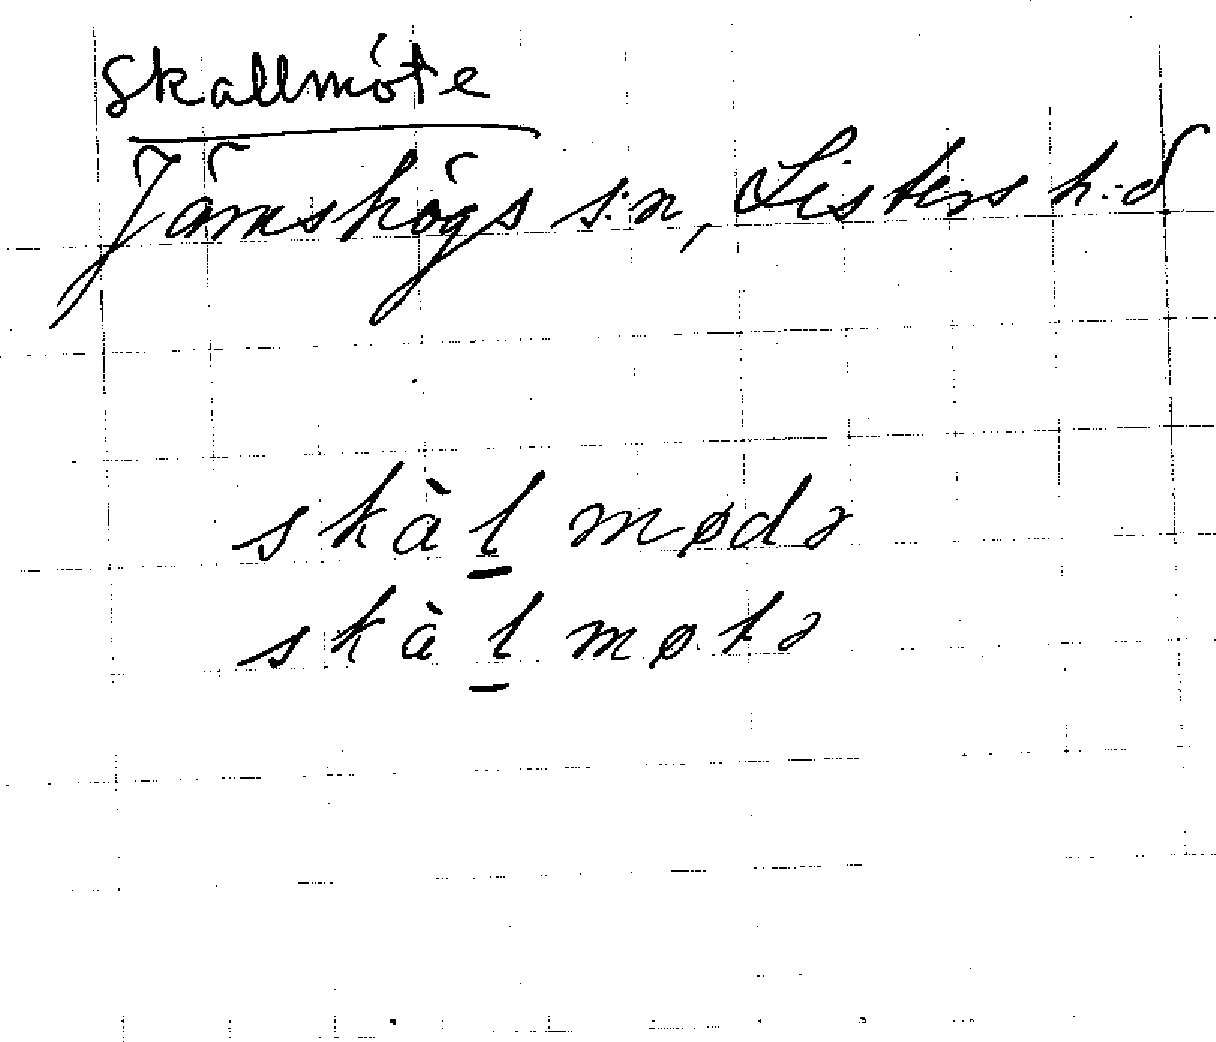 Skallmöte
Jämshögs s:n, Listers h:d
skàl̠mødə
skàl̠møtə